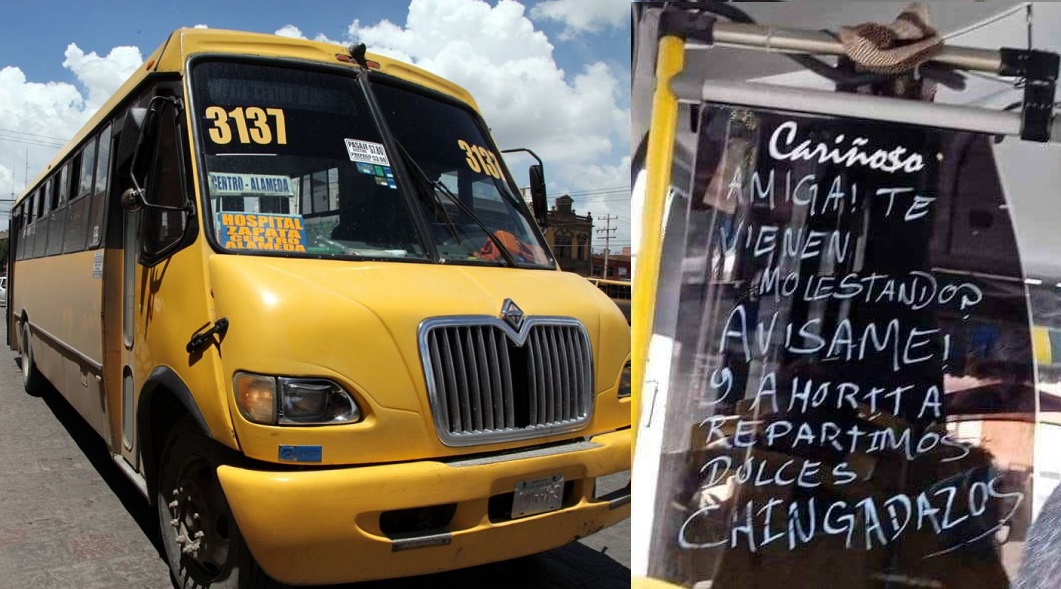 3137
PASAJE $7.00
3137
CENTRO - ALAMEDA
HOSPITAL
ZAPATA
CENTRO
ALAMEDA
Cariñoso
AMIGA! TE
VIENEN
MOLESTANDO?
AVISAME!
Y AHORITA
REPARTIMOS
DULCES
CHINGADAZOS